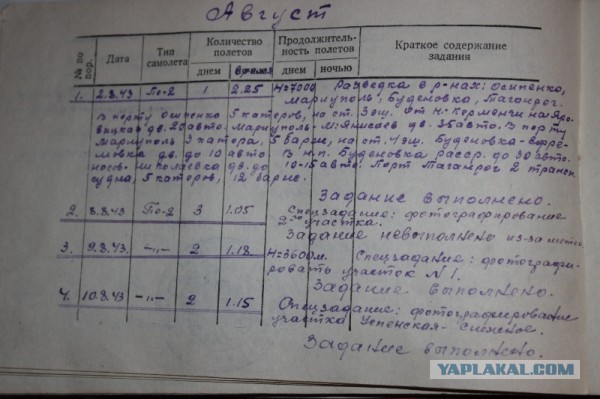 Август
№ по пор. Дата Тип самолета Количество полетов Продолжительность полетов Краткое содержание задания
днем время днем ночью
1. 2.8.43 Пе-2 1 2.25 Н=7000 Разведка в р-нах: Осипенко,
Мариуполь, Буденовка, Таганрог.
В порту Осипенко 5 катеров, на ст. 3 эш. От Н.
дв. 25 авто. Мариуполь - М: Янисоев дв. 35 авто. В порту
Мариуполь 3 катера, 5 барж, на ст. 4 эш. Буденовка - Ефре-
мовка дв. до 10 авто. В н.п. Буденовка расср. до 30 авто.
Носово - Николаевка дв. до 10-15 авто. Порт Таганрог 2 трансп.
судна, 5 катеров, 12 барж.
Задание выполнено.
2. 8.8.43 Пе-2 3 1.05 Спецзадание: фотографирование
2го участка.
Задание невыполнено из-за метео
3. 9.8.43. -"- 2 1.18 Н=3600м. Спецзадание: фотографи-
ровать участок №1.
Задание выполнено.
4. 10.8.43 -"- 2 1.15 Спецзадание: фотографирование
участка Успенская - Снежное.
Задание выполнено.
YAPLAKAL.COM